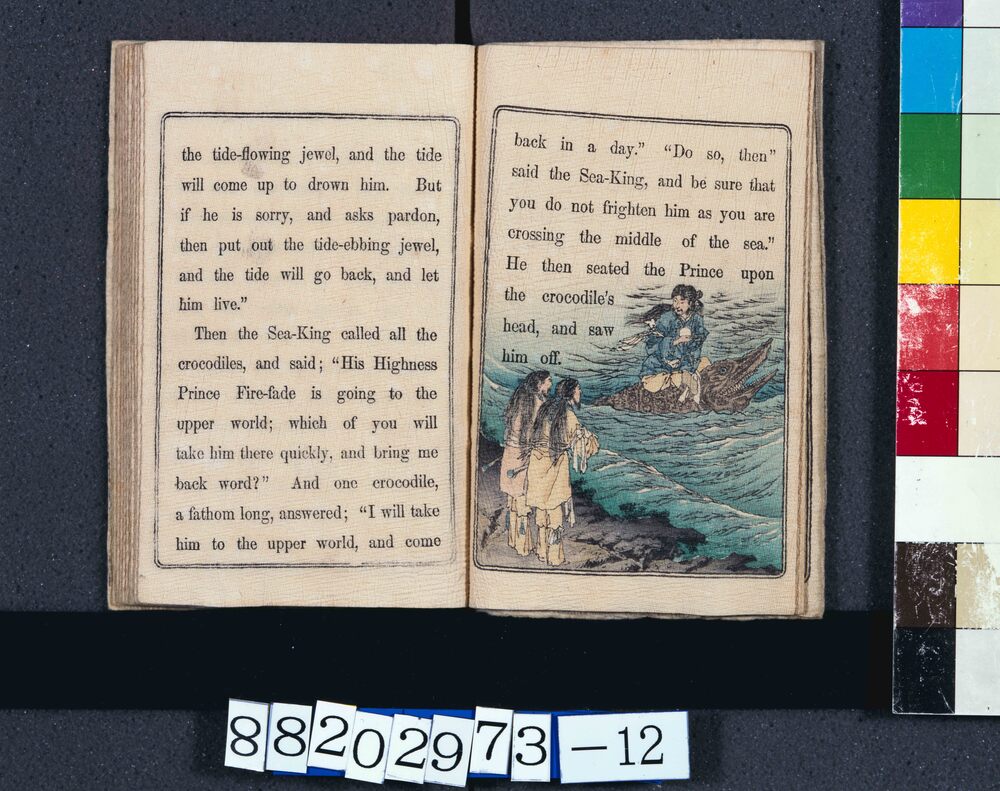 the tide-flowing jewel, and the tide
will come up to drown him. But
if he is sorry, and asks pardon,
then put out the tide-ebbing jewel,
and the tide will go back, and let
him live.”
Then the Sea-King called all the
crocodiles, and said; “His Highness
Prince Fire-fade is going to the
upper world; which of you will
take him there quickly, and bring me
back word?” And one crocodile,
a fathom long, answered; “I will take
him to the upper world, and come
back in a day.” “Do so, then”
said the Sea-King, and be sure that
you do not frighten him as you are
crossing the middle of the sea.”
He then seated the Prince upon
the crocodile's
head, and saw
him off.
88202973-12